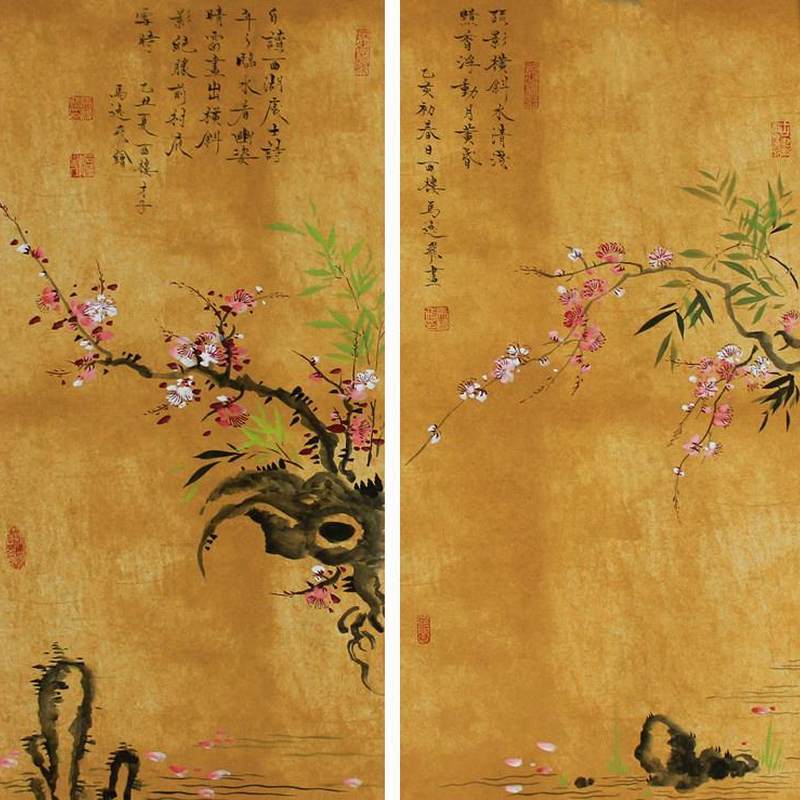 自讀西湖處士詩
年々臨水看幽姿
晴窗畫出橫斜
影絕勝前村夜
雪時 乙丑夏西樓才子
馬逸 繪
疏影橫斜水清淺
香浮動月黃昏
乙亥初春日西樓馬逸 畫